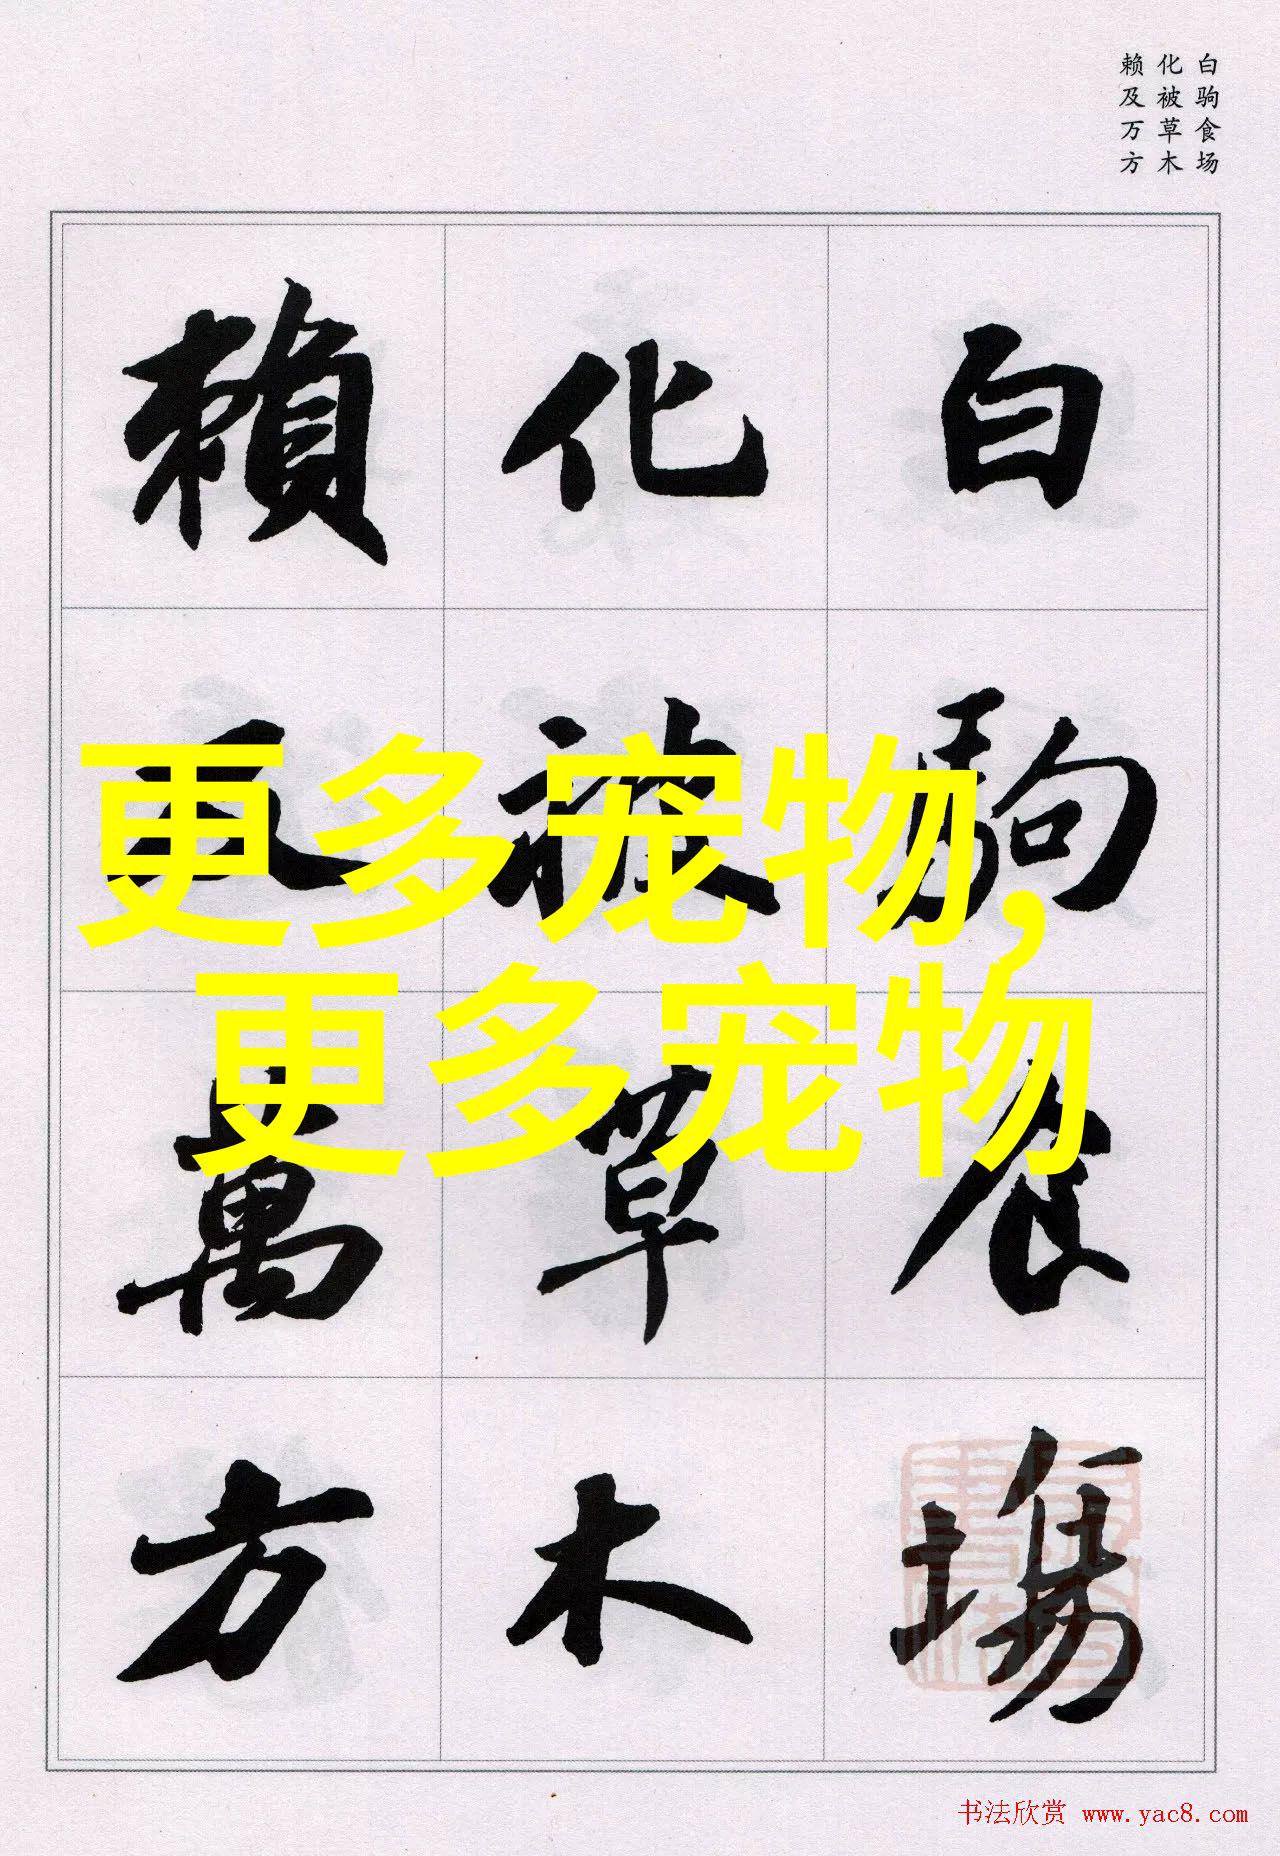 白驹食场
化被草木
赖及万方
白駒食場
化被草木
賴及萬方
更多宠物,
更多宠物
书法欣赏 www.yac8.com